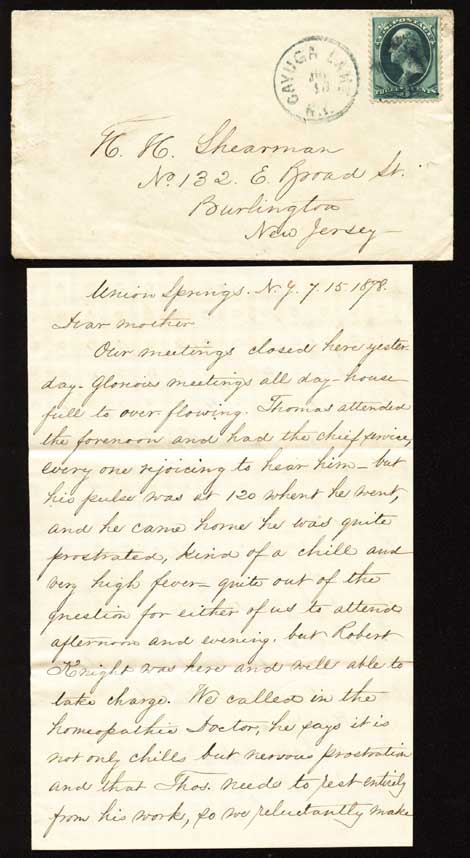 U.S. POSTAGE
THREE CENTS
CAYUGA LAKE
N.Y.
H. H. Shearman
No 132. E. Broad St.
Burlington
New Jersey
Union Springs. N.Y. 7. 15 1878.
Dear mother
Our meetings closed here yester-
day- Glorious meetings all day- house
full to over flowing. Thomas attended
the forenoon and had the chief service,
every one rejoicing to hear him- but
his pulse was at 120 whent he went,
and he came home he was quite
prostrated, kind of a chill and
very high fever- quite out of the
question for either of us to attend
afternoon and evening. but Robert
Knight was here and well able to
take charge. We called in the
homeopathic Doctor, he says it is
not only chills but nervous prostration
and that Thos. needs to rest entirely
from his work, so we reluctantly make